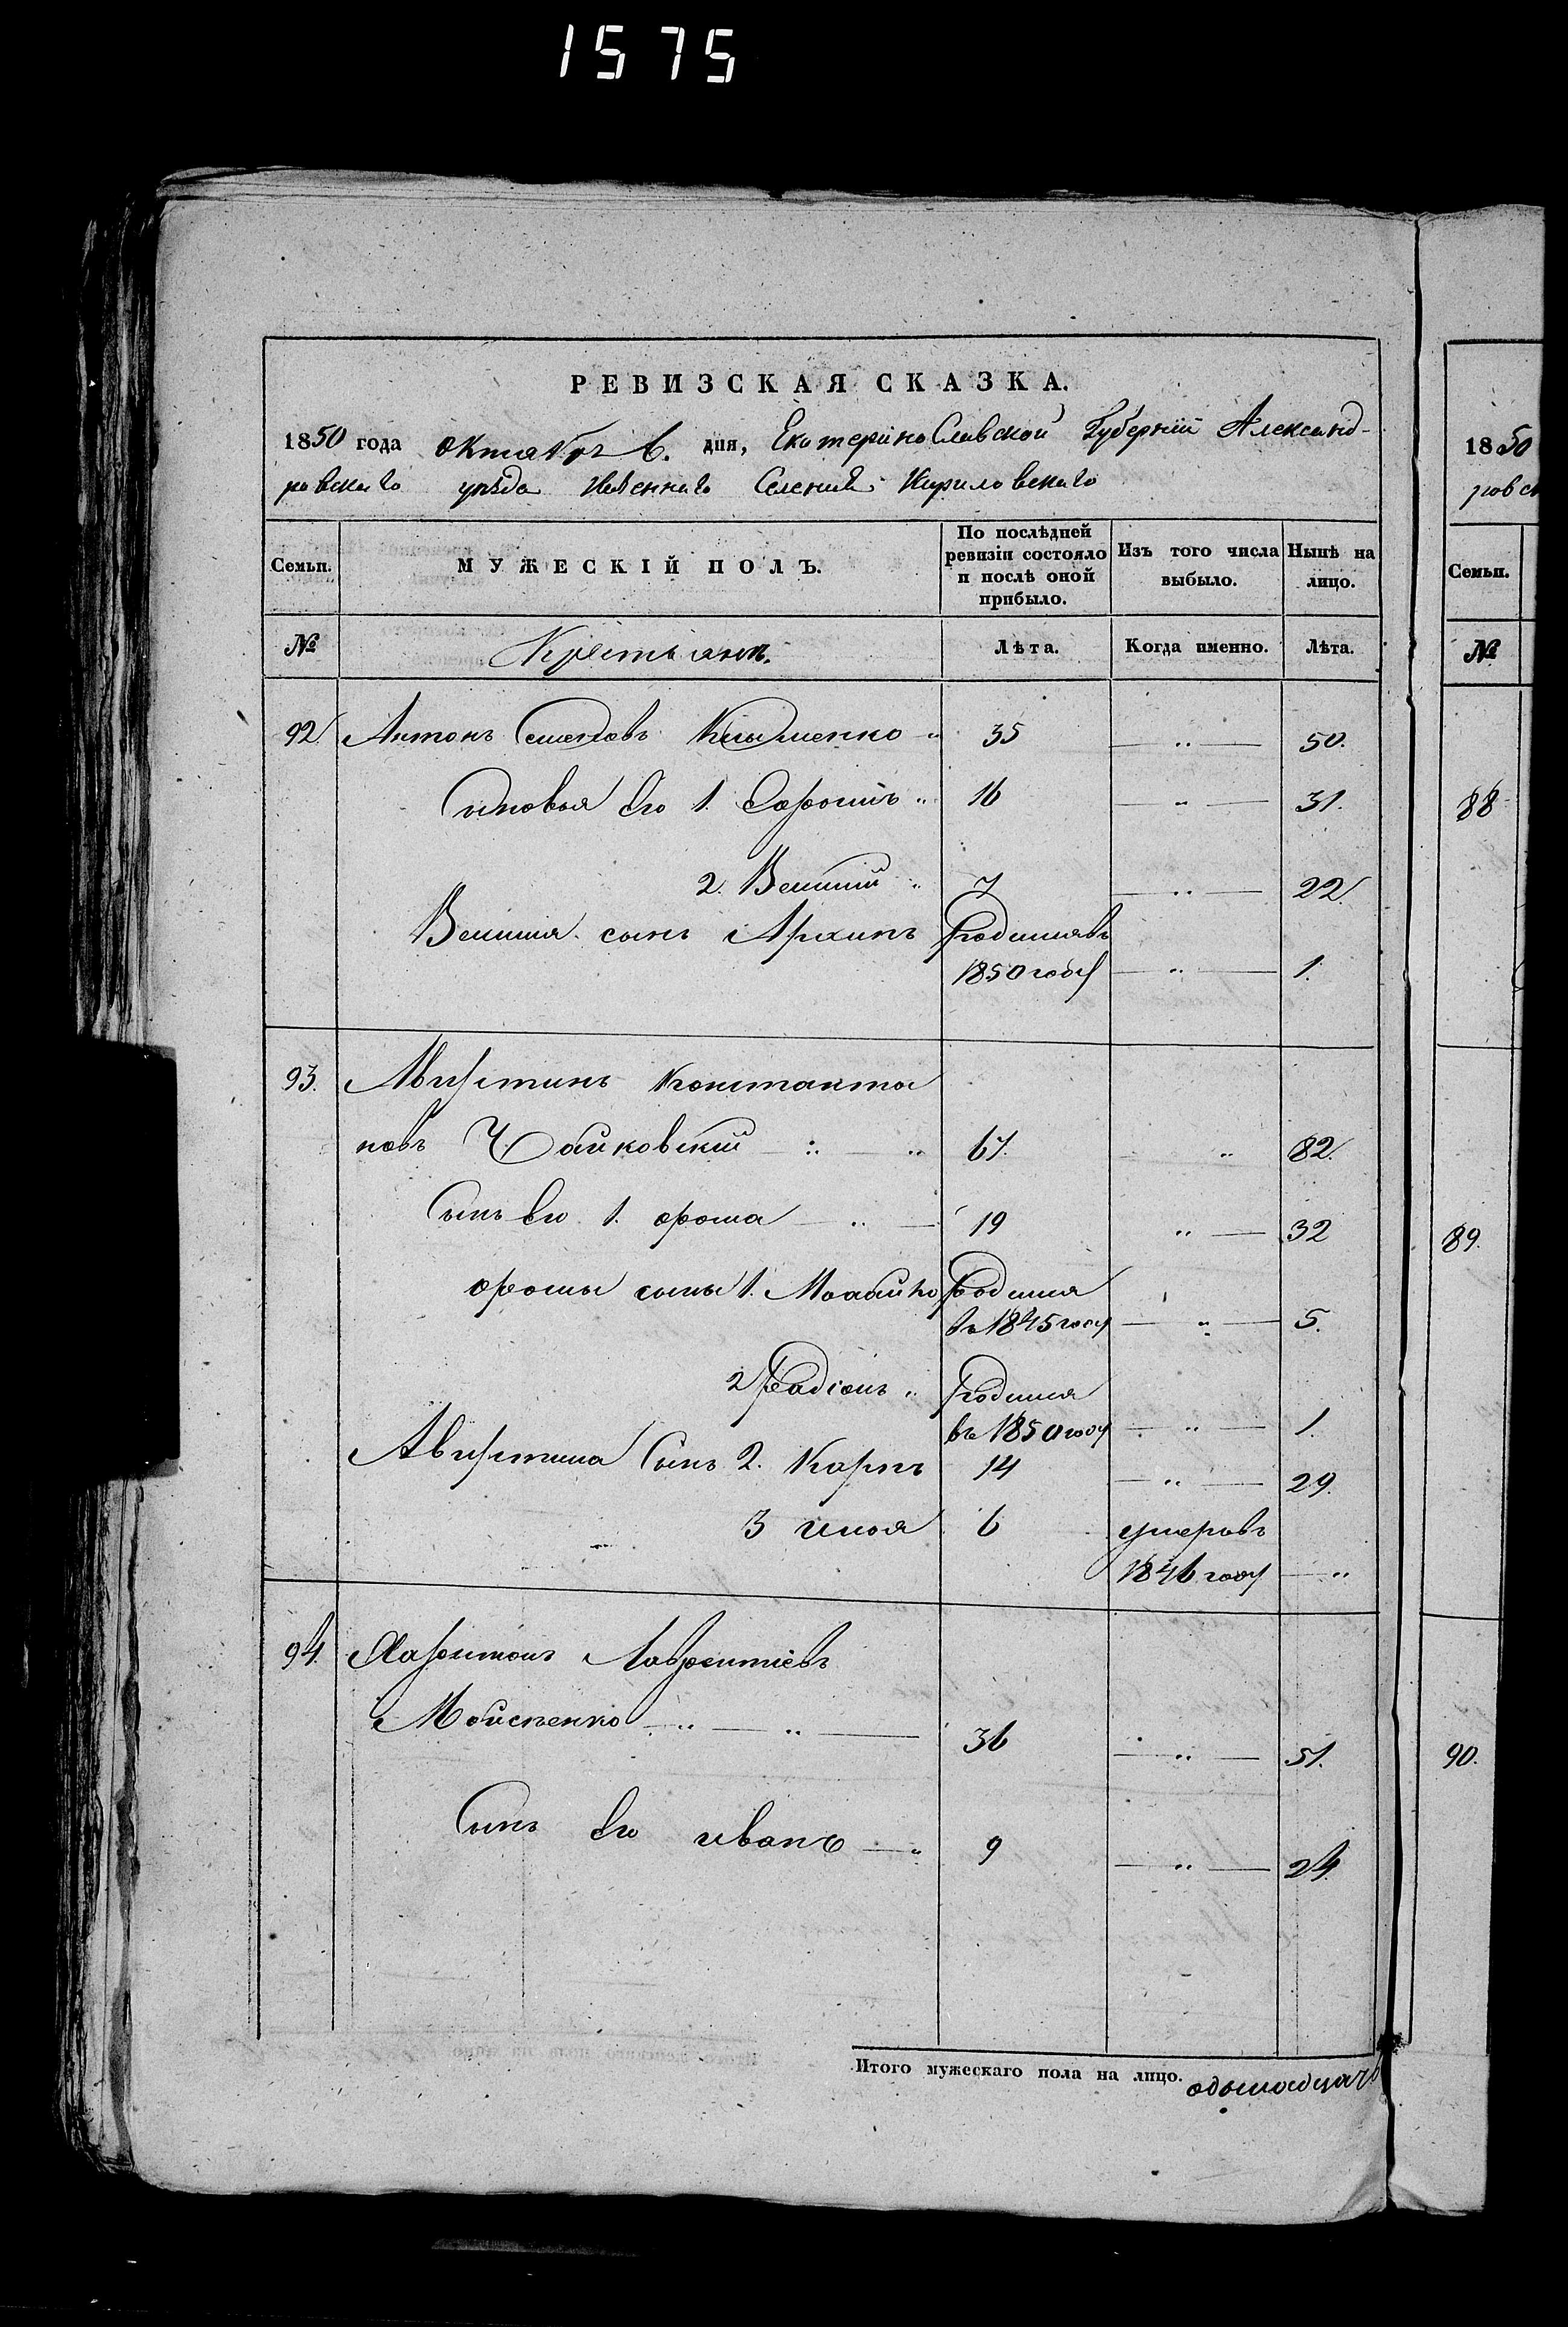 1575
РЕВИЗСКАЯ СКАЗКА.
1850 года октября 6. дня, Екатеринославской Губерніи Александ-
ровскаго уѣзда Селенія Кириловскаго
Семьи. МУЖЕСКІЙ ПОЛЪ. По послѣдней ревизіи состояло и послѣ оной прибыло. Изъ того числа выбыло. Нынѣ на лицо.
№ Крестьянъ. Лѣта. Когда именно. Лѣта.
92. Антонъ Семеновъ Клыменко 35 50.
Сыновья его 1. 16 31.
2. 7 22.
сынъ Архипъ родился въ
1850 году 1.
93. Августинъ Константи
новъ Чайковскій 67. 82.
Сынъ его 1. Фома 19 32
Фомы сыны 1. родился
въ 1845 году 5.
2 Радіонъ родился
въ 1850 году 1.
Августина Сынъ 2. Карпъ 14 29.
3 Илья 6 умеръ въ
1846 году
94. Харитонъ Лаврентіевъ
Мойсеенко 36 51.
Сынъ его иванъ 9 24
Итого мужескаго пола на лицо. одинадцать
1850
ровск
Семьи.
№
88
89.
90.